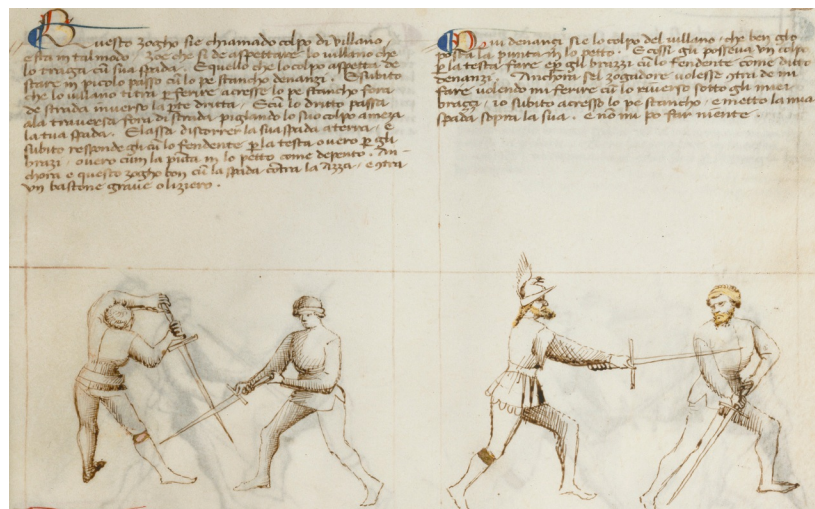 Questo zogho sie chiamado colpo di villano
e sta in tal modo. zoe che si de aspettare lo villano che
lo traga cū sua spada. E quello che lo colpo aspetta de
stare in picolo passo cū lo pe stancho denanzi. E subito
che lo villano ti tira p ferire acresse lo pe stancho fora
de strada inverso la pte dritta. E cū lo dritto passa
ala traversa fora di strada piglando lo suo colpo a meza
la tua spada. E lassa discorrer la sua spada a terra e
subito responde gli cū lo fendente p la testa overo p gli
brazi, overo cūm la pūta in lo petto come depento. An-
chora e questo zogho bon cū la spada cōtra la azza, e cōtra
un bastone grave o liziero.
Qui denanzi sie lo colpo del villano, che ben glo
posta la punta in lo petto. E cossi gli posseva un colpo
p la testa fare e p gli brazzi cū lo fendente come ditto
denanzi. Anchora sel zogadore volesse cōtra de mi
fare volendo mi ferire cū lo riverso sotto gli miei
brazzi, io subito acresso lo pe stancho, e metto la mia
spada sopra la sua. e nō mi po far niente.